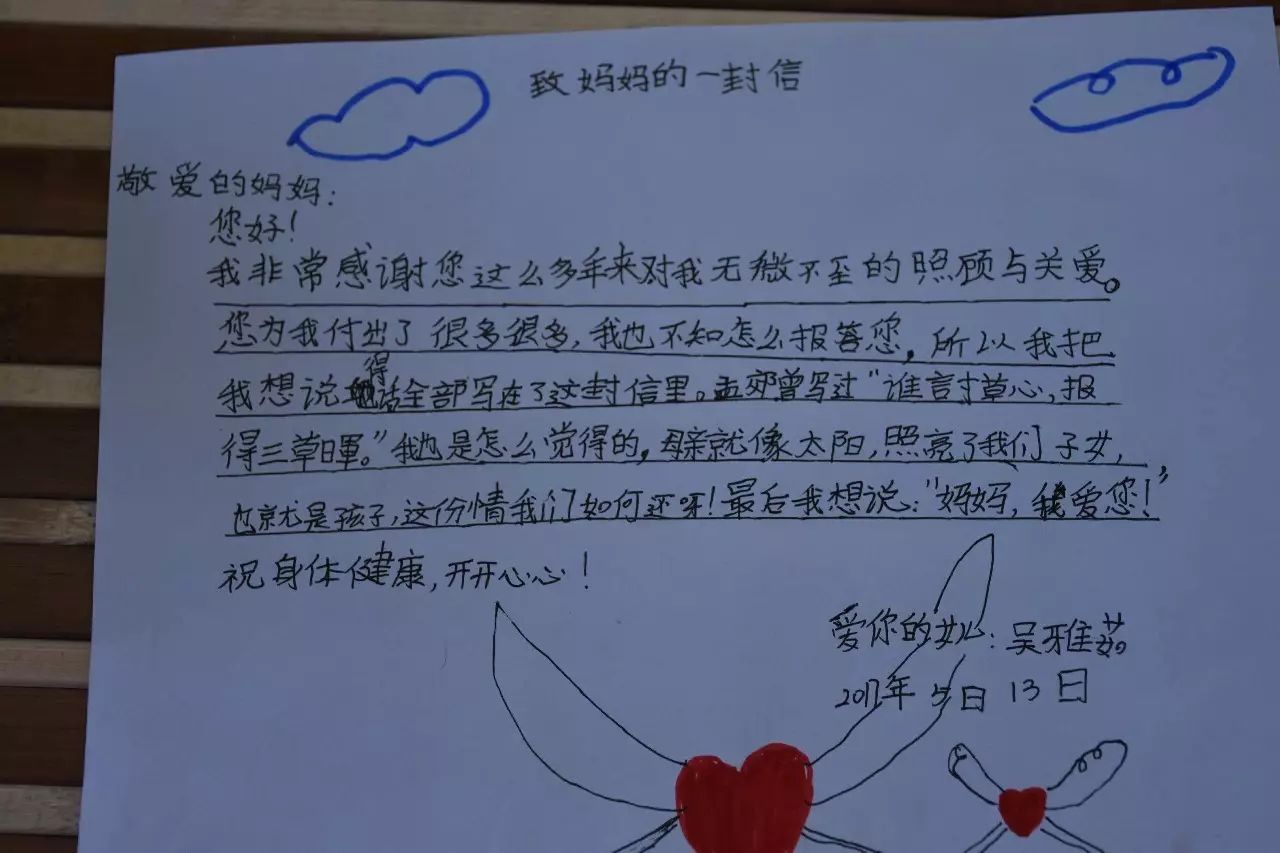 致妈妈的一封信
敬爱的妈妈：
您好！
我非常感谢您这么多年来对我无微不至的照顾与关爱。
您为我付出了很多很多，我也不知怎么报答您，所以我把
我想说得话全部写在了这封信里。孟郊曾写过“谁言寸草心，报
得三草日軍。”我也是怎么觉得的，母亲就像太阳，照亮了我们子女，
尤是孩子，这份情我们如何还呀！最后我想说：“妈妈，我爱您！”
祝身体健康，开开心心！
爱你的女儿：吴雅茹
2017年5日13日